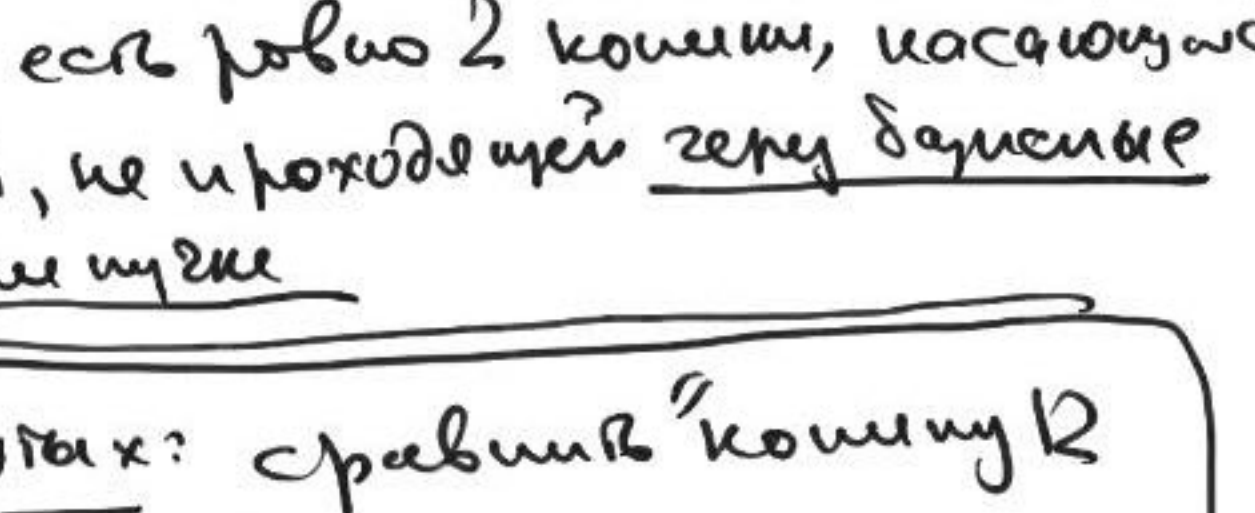 есть ровно 2 коники, касающиеся
, не проходящей через базисные
пучке
сравнить "конику К